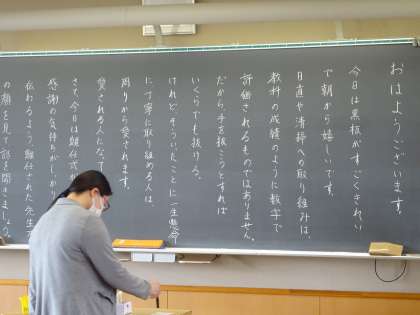 おはようございます。
今日は黒板がすごくきれい
で朝から嬉しいです。
日直や清掃への取り組みは、
教科の成績のように数字で
評価されるものではありません。
だから、手を抜こうとすれば
いくらでも抜ける。
けれど、そういったことに一生懸命
に丁寧に取り組める人は、
周りから愛されます。
愛される人になって
さて、今日は離任式
感謝の気持ちがしっか
伝わるよう、離任された先生
の顔を見て話を聞きましょう。